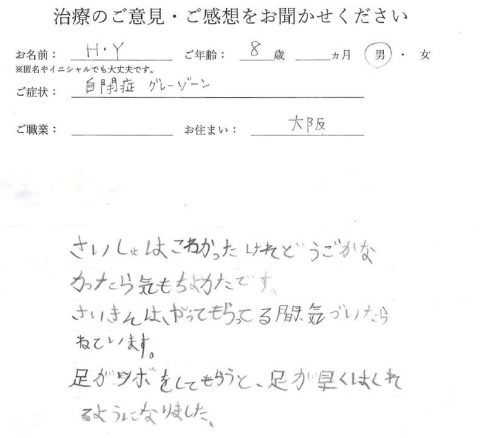 治療のご意見・ご感想をお聞かせください
お名前： H・Y ご年齢： 8 歳 ヵ月 男 ・ 女
※匿名やイニシャルでも大丈夫です。
ご症状： 自閉症 グレーゾーン
ご職業： お住まい： 大阪
さいしょはこわかったけれどうごかな
かったら気もちよかたです。
さいきんは、やってもらってる間、気づいたら
ねています。
足がツボをしてもらうと、足が早くはしれ
るようになりました。